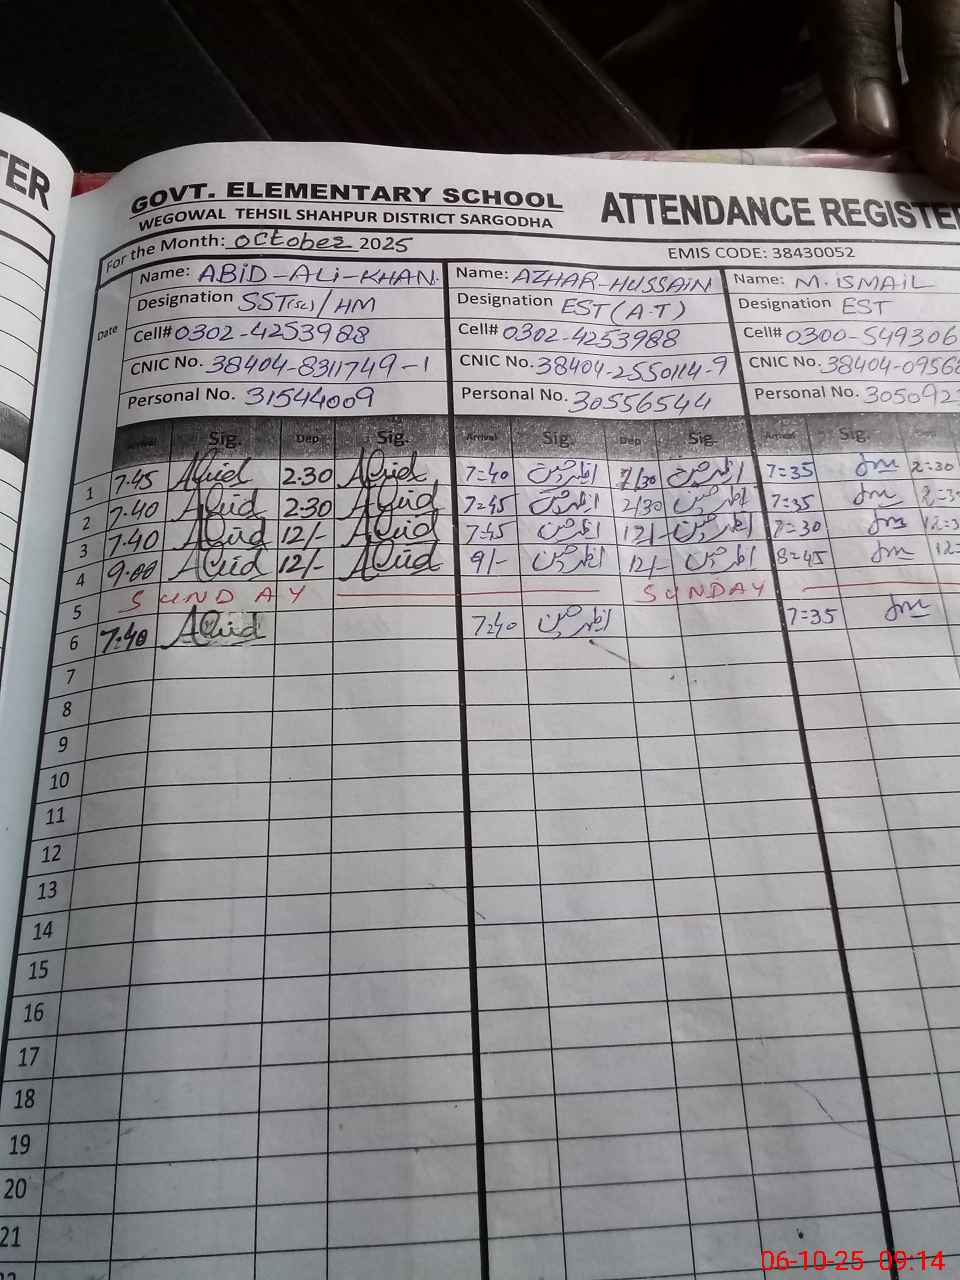 TER
GOVT. ELEMENTARY SCHOOL ATTENDANCE REGISTE
WEGOWAL TEHSIL SHAHPUR DISTRICT SARGODHA
For the Month: October 2025 EMIS CODE: 38430052
Name: ABID-ALI-KHAN. Name: AZHAR-HUSSAIN Name: M.ISMAIL
Designation SST(sc)/HM Designation EST(A.T) Designation EST
Date Cell# 0302-4253988 Cell# 0302-4253988 Cell# 0300-549306
CNIC No. 38404-8311749-1 CNIC No. 38404-2550114-9 CNIC No. 38404-0956
Personal No. 31544009 Personal No. 30556544 Personal No. 305092
Arrival Sig. Dep Sig. Arrival Sig. Dep Sig. Arrival Sig.
1 7.45 Abid 2.30 Abid 7=40 اظہر حسین 2/30 اظہر حسین 7=35 2=30
2 7.40 Abid 2.30 Abid 7=45 اظہر حسین 2/30 اظہر حسین 7=35
3 7.40 Abid 12/- Abid 7=45 اظہر حسین 12/- اظہر حسین 7=30
4 9.00 Abid 12/- Abid 9/- اظہر حسین 12/- اظہر حسین 8=45
5 SUNDAY SUNDAY
6 7:40 Abid 7=40 اظہر حسین 7=35
7
8
9
10
11
12
13
14
15
16
17
18
19
20
21
06-10-25 09:14